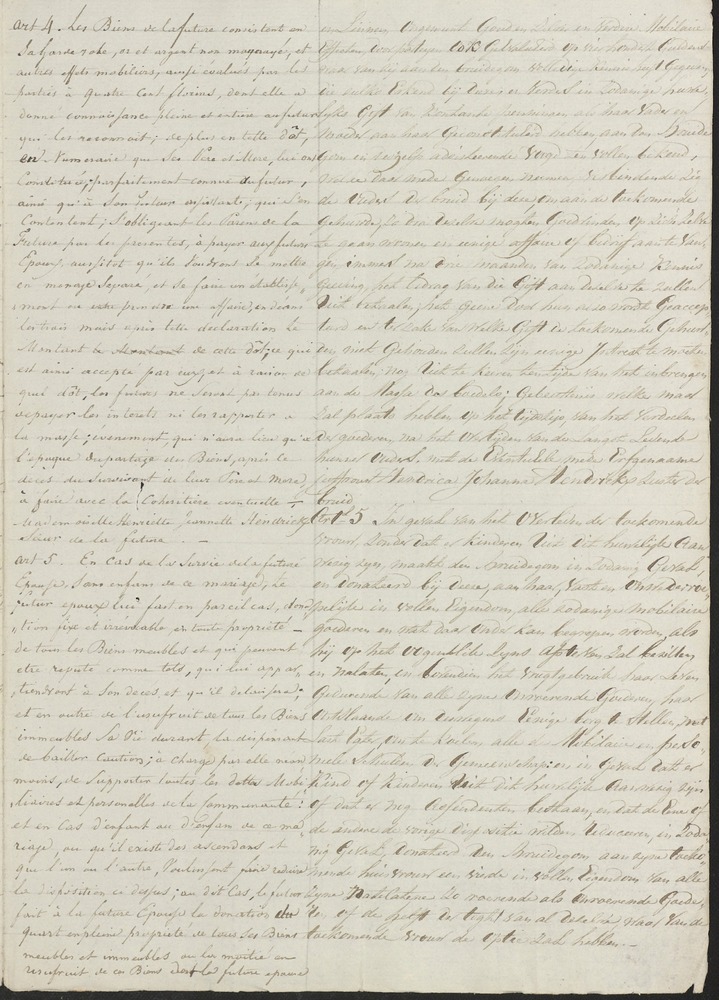 Art 4. Les Biens de la future consistent en
sa Garde robe, or et argent non monnayé, et
autres effets mobiliers, ainsi évalués par les
parties à Quatre Cent florins, dont elle a
donné connaissance pleine et entière au futur
qui les reconnait; de plus en telle dôt,
en Numeraire que ses Père et Mère, lui ont
Constituée, parfaitement connue du futur,
ainsi qu'il le declare, qui s'en
Contentent; s'obligeant les Parens de la
Future par les presentes, à payer aux futurs
Epoux, aussitot qu'ils voudront se mettre
en menage séparé, et se faire un établisse-
ment ou entreprendre une affaire, endeans
les trois mois après telle declaration le
Montant de cette dôt, ce qui
est ainsi accepté par eux, et à raison de
quel dôt, les futurs ne seront pas tenus
de payer les interets ni les rapporter à
la masse; évenement, qui n'aura lieu qu'à
l'epoque du partage des Biens, après le
decès du Survivant de leur Père et Mere,
à faire avec la Coheritière eventuelle
Mademoiselle Henriette Jeannette Hendrickx
Sœur de la future.
Art 5. En Cas de la Survie de la future
Epouse, sans enfans de ce mariage, le
futur epoux lui fait en pareil cas, dona-
tion fixe et irrevocable, en toute propriété
de tous les Biens meubles et qui peuvent
etre reputé comme tels, qui lui appar-
tiendront à son decès et qu'il delaissera
et en outre de l'usufruit de tous les Biens
immeubles sa Vie durant la dispensant
de bailler Caution; à charge par elle néan
moins, de supporter toutes les dettes Mobi
liaires et personnelles de la Communauté:
et en cas d'enfant ou d'enfans de ce ma
riage, ou qu'il existe des ascendans et
que l'un ou l'autre, voulussent faire reduire
la disposition ci dessus; au dit Cas, le futur
fait à la future Epouse la donation du
quart en pleine propriété de tous ses Biens
meubles et immeubles ou la moitié en
usufruit de ces Biens dont la future epouse
en Linnen, ongemunt Goud en Zilver en verdere Mobilaire
Effecten, door partyen ook Gevalueerd op vier honderd Guldens
waar van hij aan den bruidegom volledige Kennis heeft Gegeven,
die zulks erkend bij dezen en verders in zodanige huwe-
lijks Gift van Klinkende penningen als haar Vader en
Moeder aan haar Geconstitueerd hebben, aan den Bruide
gom
de Ouders der bruid bij dezen, om aan de toekomende
Gehuwde, zo dra dezelve mogten Goedvinden op zich zelve
te gaan woonen en eenige affaire of bedrijf aan te van
gen, immers na drie maanden van zodanige Kennis
geeving, het bedrag van die Gift aan dezelve te zullen
uitbetaalen, het Geen door hun alzo wordt Geaccep
teerd en ter zake van welke Gift de toekomende Gehuwd
den niet Gehouden zullen zijn eenige Intrest te moeten
betaalen, nog die te
aan de Massa des boedels; Gebeurtenis welke maar
zal plaats hebben op het tijdstip van het verdeelen
der goederen, na het overlijden van den Langst Leevende
hunner Ouders, met de Eventueele mede Erfgenaame
juffrouw Henrica Johanna Hendrickx Zuster der
bruid.
Art 5. In geval van het Overleven der toekomende
vrouw, zonder dat er Kinderen uit dit huwelijk Aan
wezig zijn, maakt den bruidegom in zodanig Geval
en donateerd bij dezen, aan haar, vast en Onherroe
pelijk in vollen Eigendom, alle zodanige Mobilaire
goederen en wat daar onder kan begrepen worden, als
hij op het oogenblik zijns Afstervens zal bezitten
en nalaten, en boven dien het vrugtgebruik haar Leven
Geduurende van alle zyne Onroerende Goederen, haar
Ontslaande om deswegens Eenige borg te stellen, met
Last Egter, om te voldoen alle de Mobilaire en perso-
neele Schulden der Gemeenschap: en in Geval dat er
Kind of Kinderen uit dit huwelijk Aanwezig zijn
of dat er nog Ascendenten bestaan, en dat de Eene of
de andere de vorige dispositie wilden reduceeren, in Zoda
nig Geval donateerd den Bruidegom aan zyne toeko-
mende huisvrouw een vierde in vollen Eigendom van alle
zyne Nagelatene zo roerende als onroerende Goede,
ren, of de helft in togt van al dezelve waar van de
toekomende vrouw de optie zal hebben.